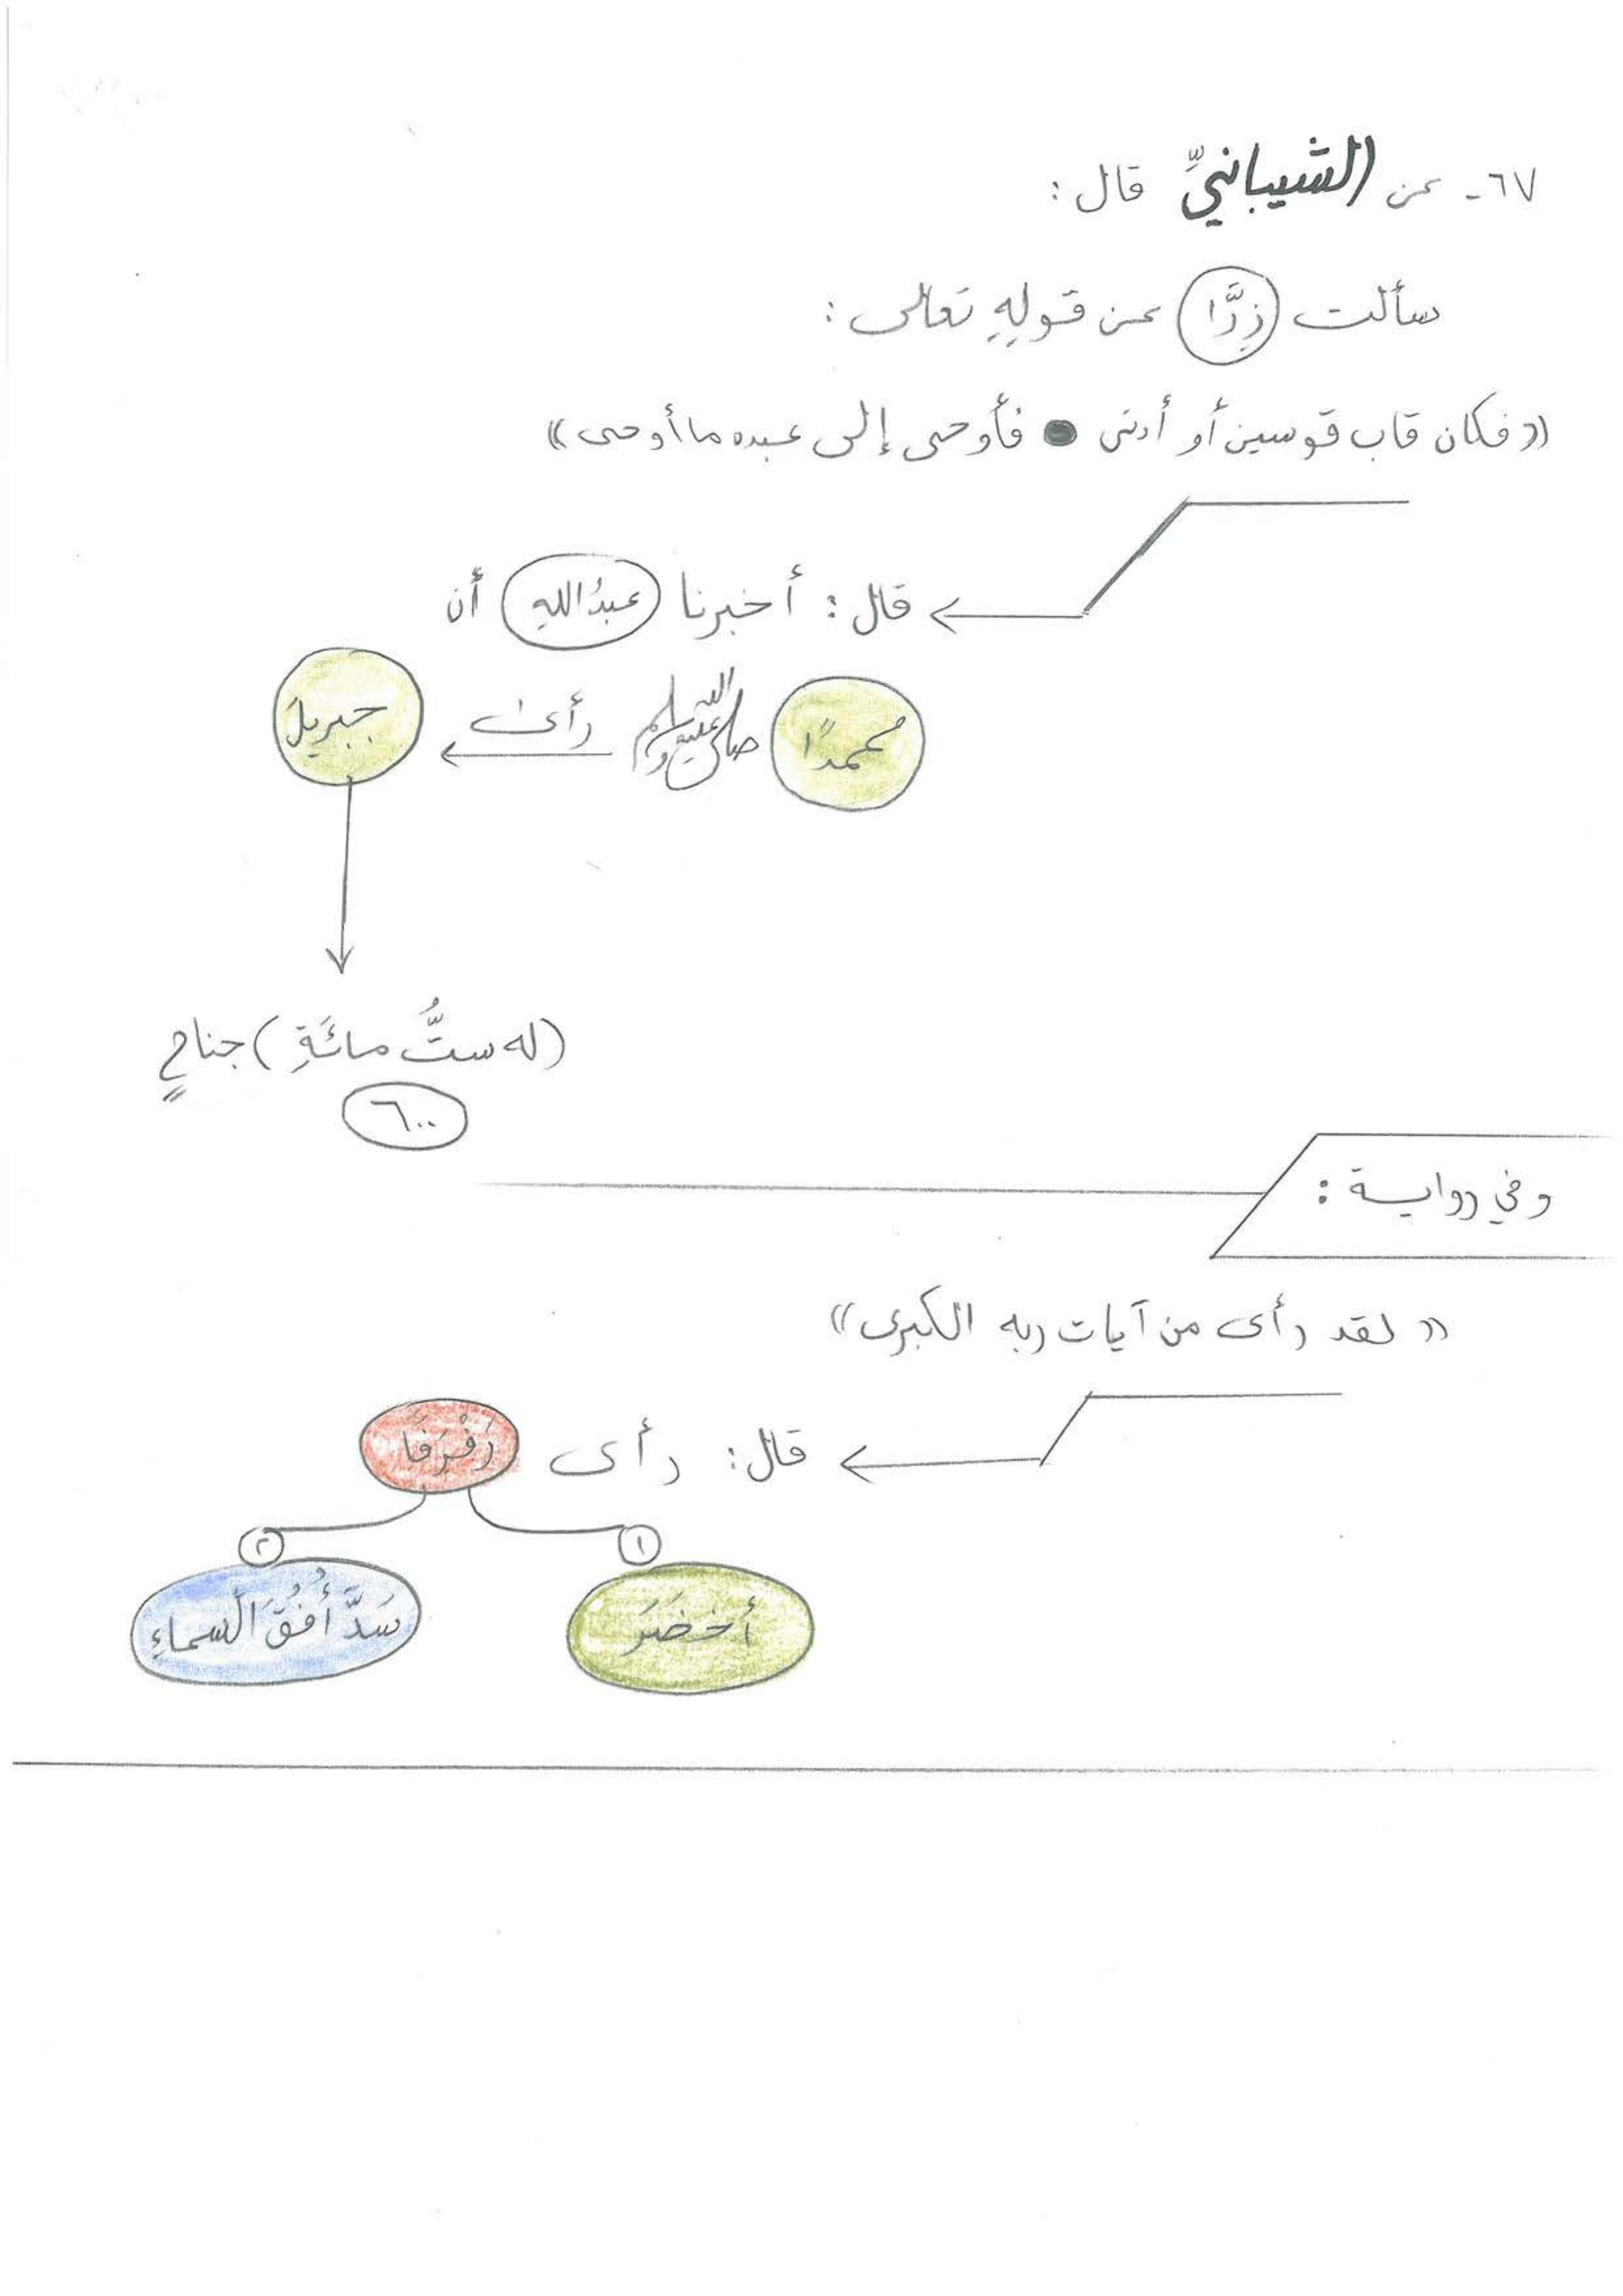 ٦٧- عن الشيبانيِّ قال:
سألت زِرًّا عن قولِهِ تعالى:
«فكان قاب قوسين أو أدنى ● فأوحى إلى عبده ما أوحى»
قال: أخبرنا عبدُ اللهِ أن
محمدًا صلى الله عليه وسلم رأى جبريلَ
(له ستُّ مائَةِ) جناحٍ
٦٠٠
وفي رواية:
«لقد رأى من آيات ربه الكبرى»
قال: رأى رَفْرَفًا
١ ٢
أَخضَرَ سَدَّ أُفُقَ السماءِ